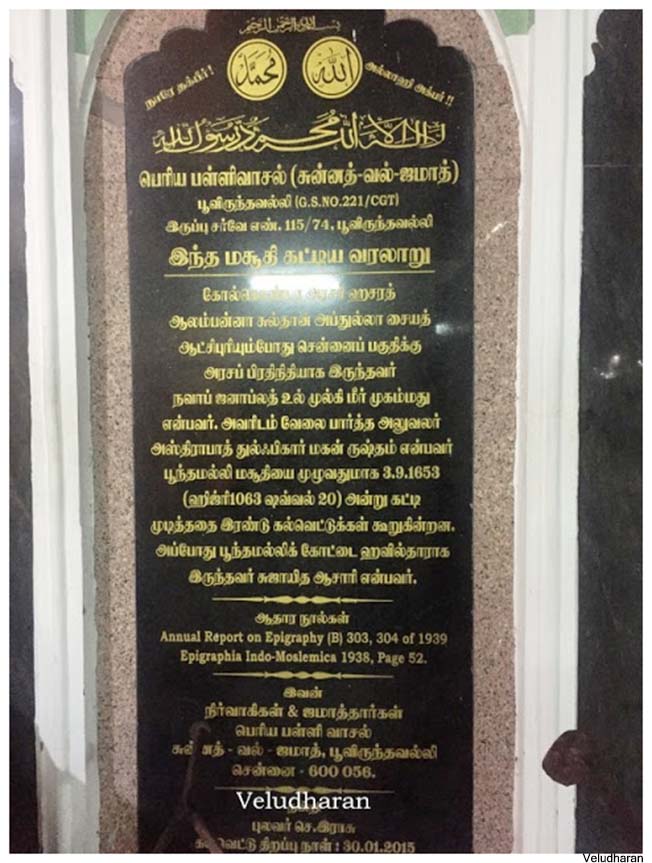 بسم الله الرحمن الرحيم
நாரே தக்பீர் !
محمد
الله
அல்லாஹு அக்பர் !!
لا اله الا الله محمد رسول الله
பெரிய பள்ளிவாசல் (சுன்னத்-வல்-ஜமாத்)
பூவிருந்தவல்லி (G.S.NO.221/CGT)
இருப்பு சர்வே எண். 115/74, பூவிருந்தவல்லி
இந்த மசூதி கட்டிய வரலாறு
ஹசரத்
ஆலம்பன்னா சுல்தான் அப்துல்லா சையத்
ஆட்சிபுரியும்போது சென்னைப் பகுதிக்கு
அரசப் பிரதிநிதியாக இருந்தவர்
நவாப் ஜனாப்லத் உல் முல்கி மீர் முகம்மது
என்பவர். அவரிடம் வேலை பார்த்த அலுவலர்
அஸ்திராபாத் துல்ஃபிகார் மகன் ருஷ்தம் என்பவர்
பூந்தமல்லி மசூதியை முழுவதுமாக 3.9.1653
(ஹிஜ்ரி1063 ஷவ்வல் 20) அன்று கட்டி
முடித்ததை இரண்டு கல்வெட்டுக்கள் கூறுகின்றன.
அப்போது பூந்தமல்லிக் கோட்டை ஹவில்தாராக
இருந்தவர் சுஜாயித ஆசாரி என்பவர்.
ஆதார நூல்கள்
Annual Report on Epigraphy (B) 303, 304 of 1939
Epigraphia Indo-Moslemica 1938, Page 52.
இவன்
நிர்வாகிகள் & ஜமாத்தார்கள்
பெரிய பள்ளி வாசல்
சுன்னத் - வல் - ஜமாத், பூவிருந்தவல்லி
சென்னை - 600 056.
Veludharan
புலவர் செ.இராசு
கல்வெட்டு திறப்பு நாள் : 30.01.2015
Veludharan